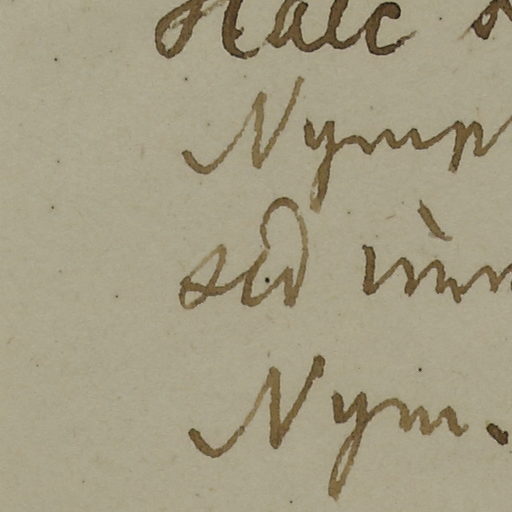 Haec
Nymp
sed imm
Nym.